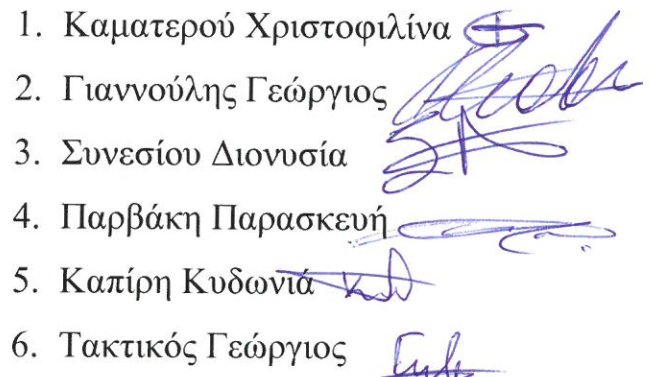 1. Καματερού Χριστοφιλίνα
2. Γιαννούλης Γεώργιος
3. Συνεσίου Διονυσία
4. Παρβάκη Παρασκευή
5. Καπίρη Κυδωνιά
6. Τακτικός Γεώργιος